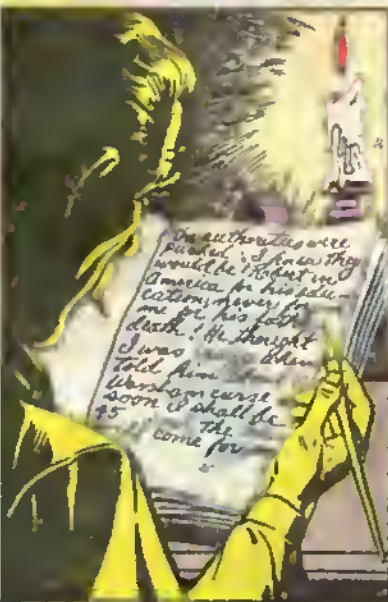 authorities were
puzzled! I knew they
would be! Robert in
America for his edu-
cation, never for-
me for his
death! He thought
I was when I
told him
Warsham curse
soon I shall be
45 the
come for